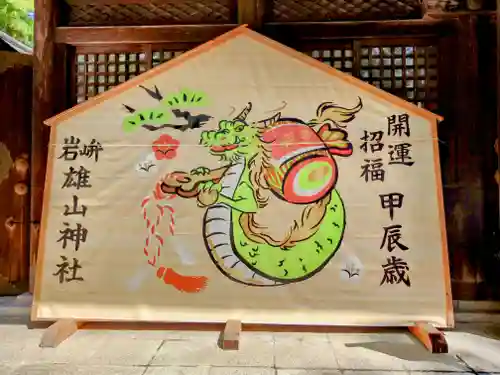 開運
招福
甲辰歳
岩峅
雄山神社